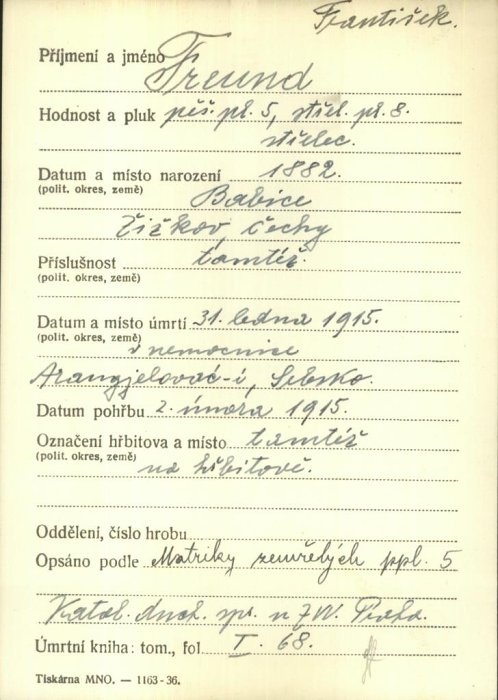 František.
Příjmení a jméno Freund
Hodnost a pluk pěš. pl. 5, střel. pl. 8.
střelec.
Datum a místo narození 1882.
(polit. okres, země)
Babice
Žižkov, Čechy
Příslušnost tamtéž.
(polit. okres, země)
Datum a místo úmrtí 31. ledna 1915.
(polit. okres, země)
v nemocnice
Arangjelovać-i, Srbsko.
Datum pohřbu 2. února 1915.
Označení hřbitova a místo tamtéž
(polit. okres, země)
na hřbitově.
Oddělení, číslo hrobu
Opsáno podle Matriky zemřelých ppl. 5
Katol. duch. spr. u ZVV. Praha.
Úmrtní kniha: tom., fol. I. 68.
Tiskárna MNO. — 1163-36.